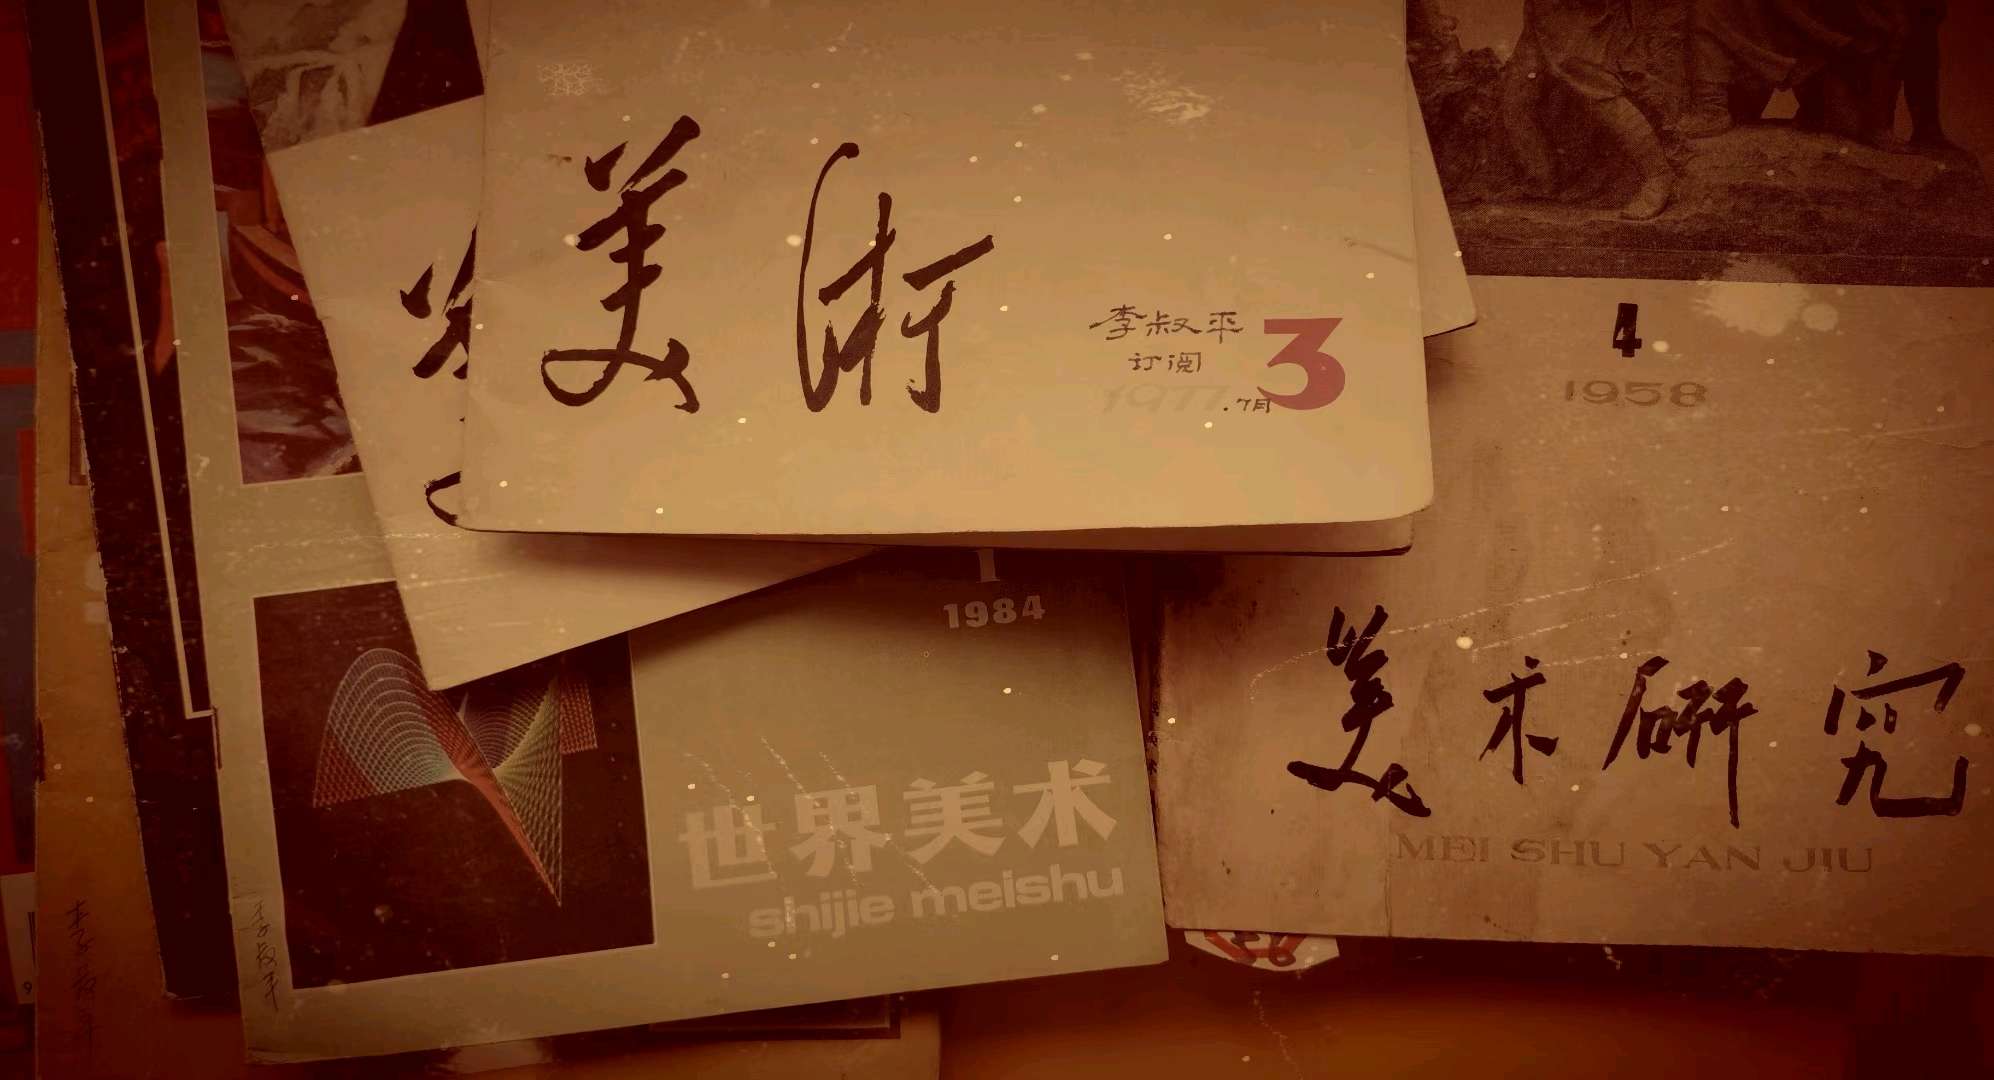 美術
李叔平
订阅
3
1977.7月
4
1958
1
1984
世界美术
shijie meishu
美术研究
MEI SHU YAN JIU